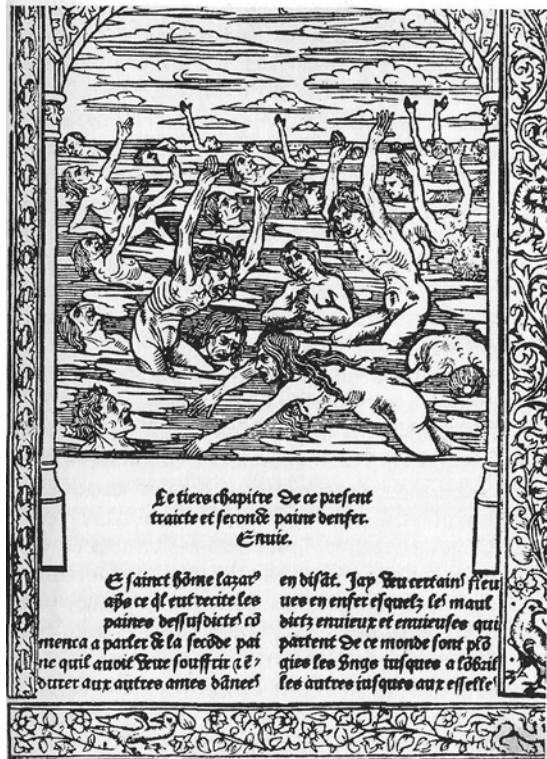 Le tiers chapitre de ce present
traicte et seconde paine denfer.
Enuie.
E sainct hõme lazarꝰ
aps̃ ce ql̃ eut recite les
paines dessusdictes cõ
menca a parler de la secõde pai
ne quil auoit veue souffrir ⁊ ẽ⸗
durer aux autres ames dãnees
en disãt. Jay veu certains fleu
ues en enfer esquelz les maul
dictz enuieux et enuieuses qui
partent de ce monde sont plõ
gies les vngs iusques a lõbril
les autres iusques aux esselles